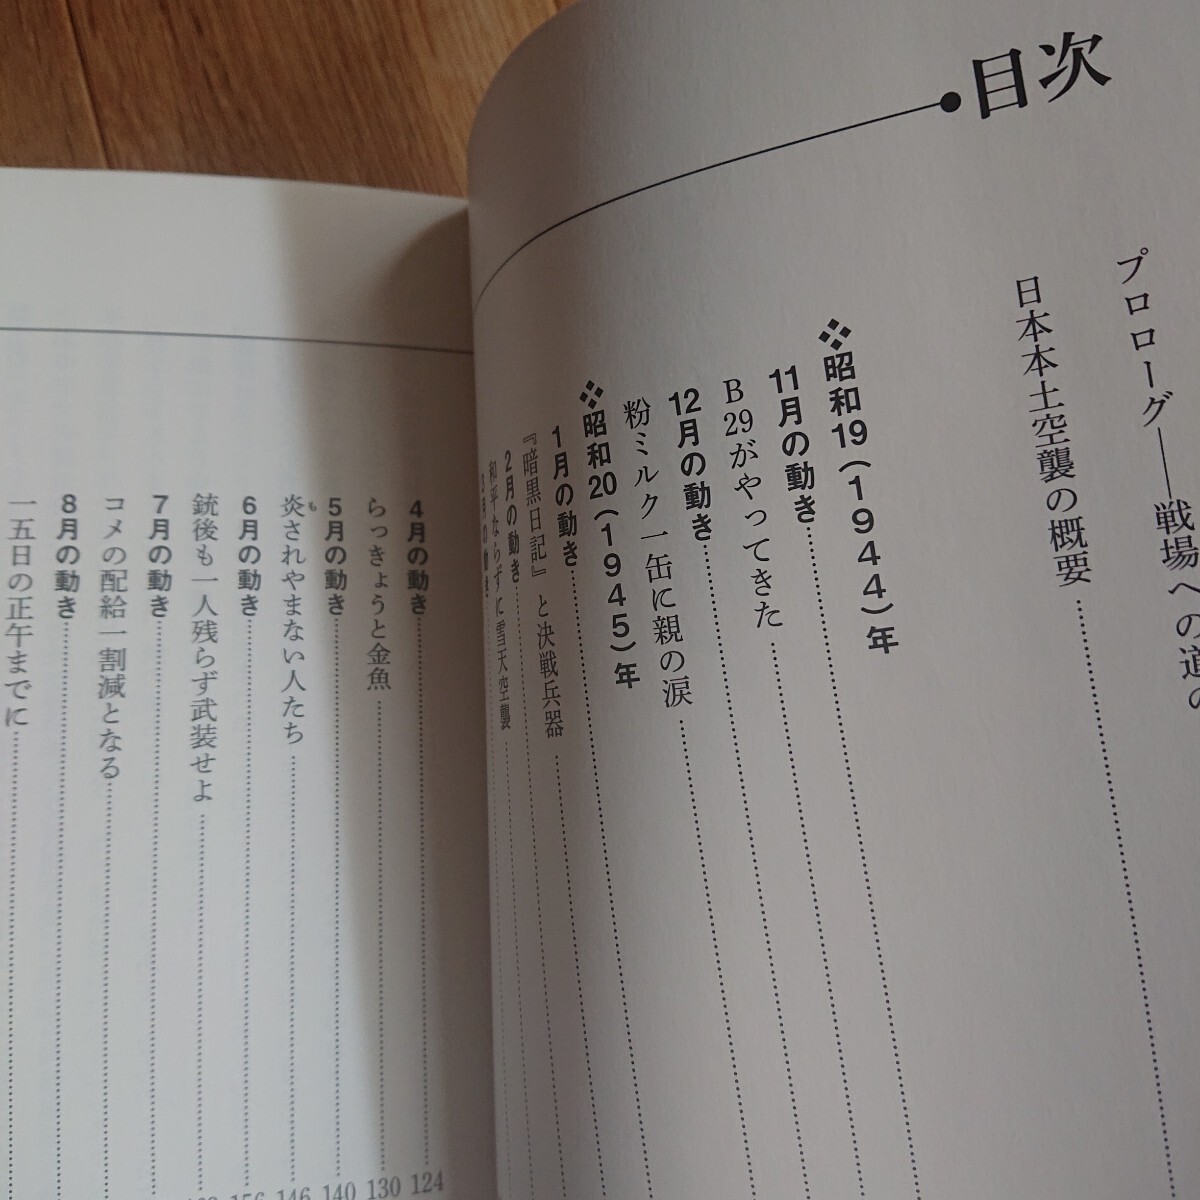 目次
プロローグ―戦場への道の
日本本土空襲の概要
❖昭和19(1944)年
11月の動き
B29がやってきた
12月の動き
粉ミルク一缶に親の涙
❖昭和20(1945)年
1月の動き
『暗黒日記』と決戦兵器
2月の動き
和平ならずに雪天空襲
3月の動き
4月の動き 124
らっきょうと金魚 130
5月の動き 140
炎されやまない人たち 146
も
6月の動き 156
銃後も一人残らず武装せよ
7月の動き
コメの配給一割減となる
8月の動き
一五日の正午までに